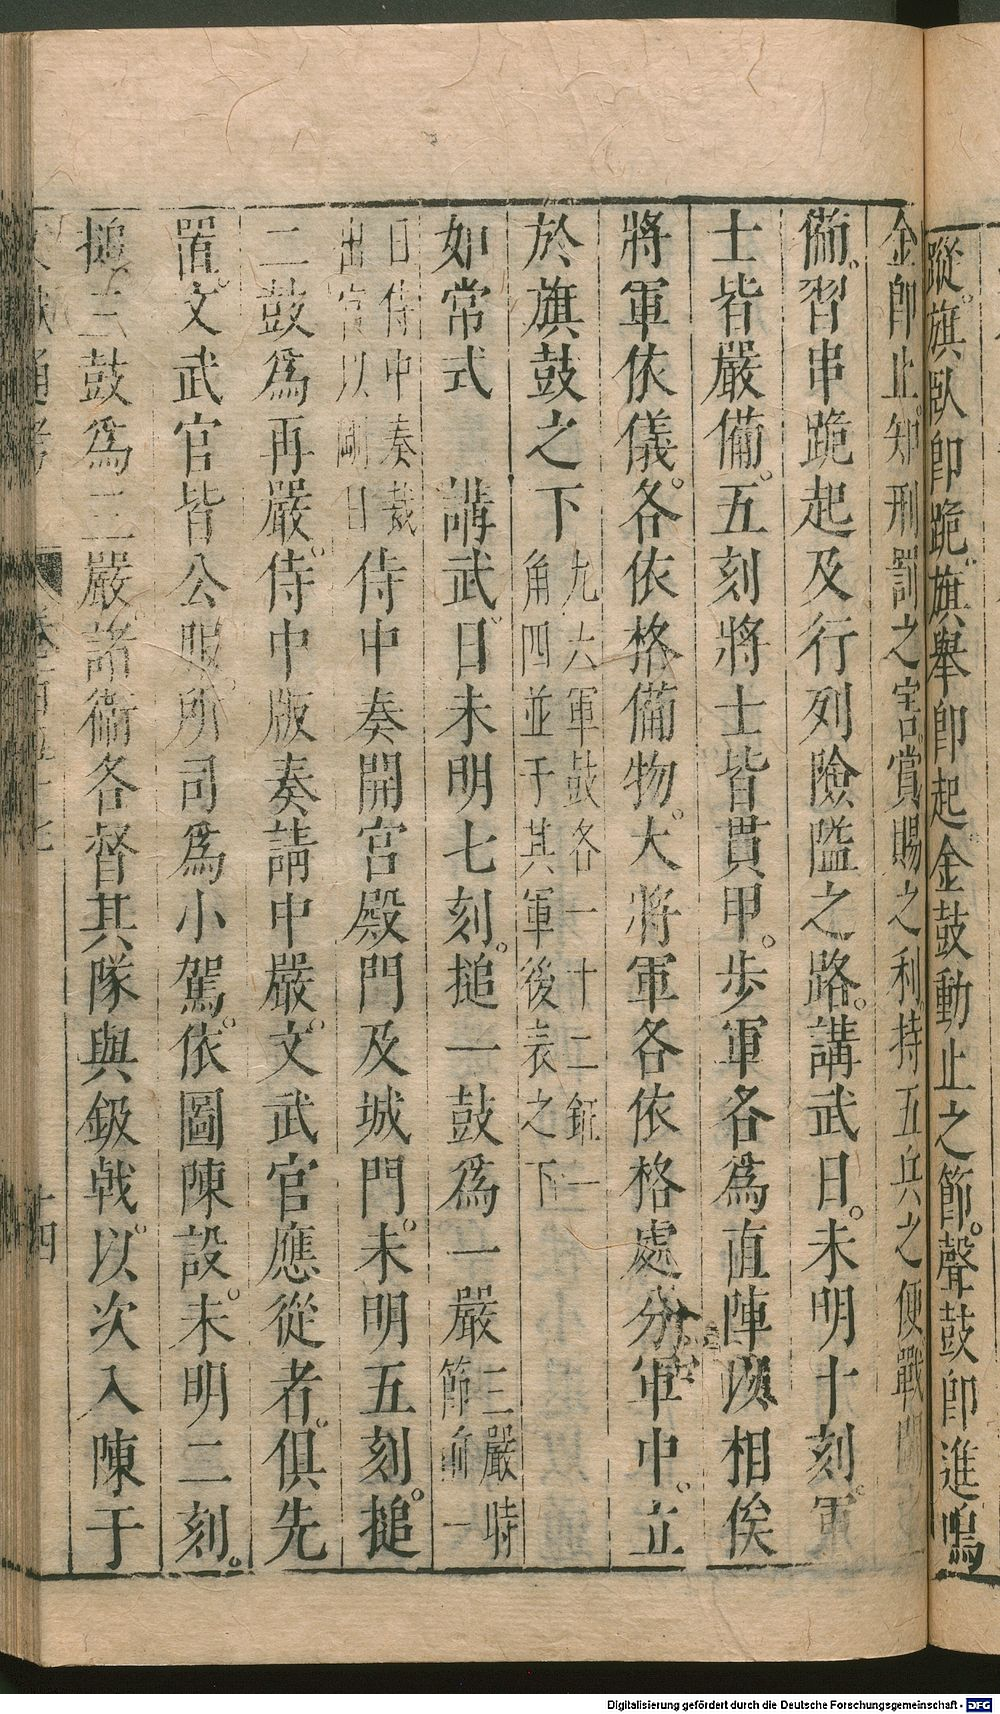 蹤旗臥卽跪旗舉卽起金鼓動止之節聲鼓卽進鳴
金卽止知刑罰之害賞賜之利持五兵之便戰鬬
備習串跪起及行列險隘之路講武日未明十刻軍
士皆嚴備五刻將士皆貫甲步軍各爲直陣以相俟
將軍依儀各依格備物大將軍各依格處分軍中立
於旗鼓之下九六軍鼓各一十二鉦一
角四並于其軍後表之下
如常式 講武日未明七刻搥一鼓爲一嚴三嚴時
節前一
日侍中奏裁
出宮以剛日侍中奏開宮殿門及城門未明五刻搥
二鼓爲再嚴侍中版奏請中嚴文武官應從者俱先
置文武官皆公服所司爲小駕依圖陳設未明二刻
搥三鼓爲三嚴諸衞各督其隊與鈒戟以次入陳于
文獻通考 卷一百五十七 十四
Digitalisierung gefördert durch die Deutsche Forschungsgemeinschaft - DFG